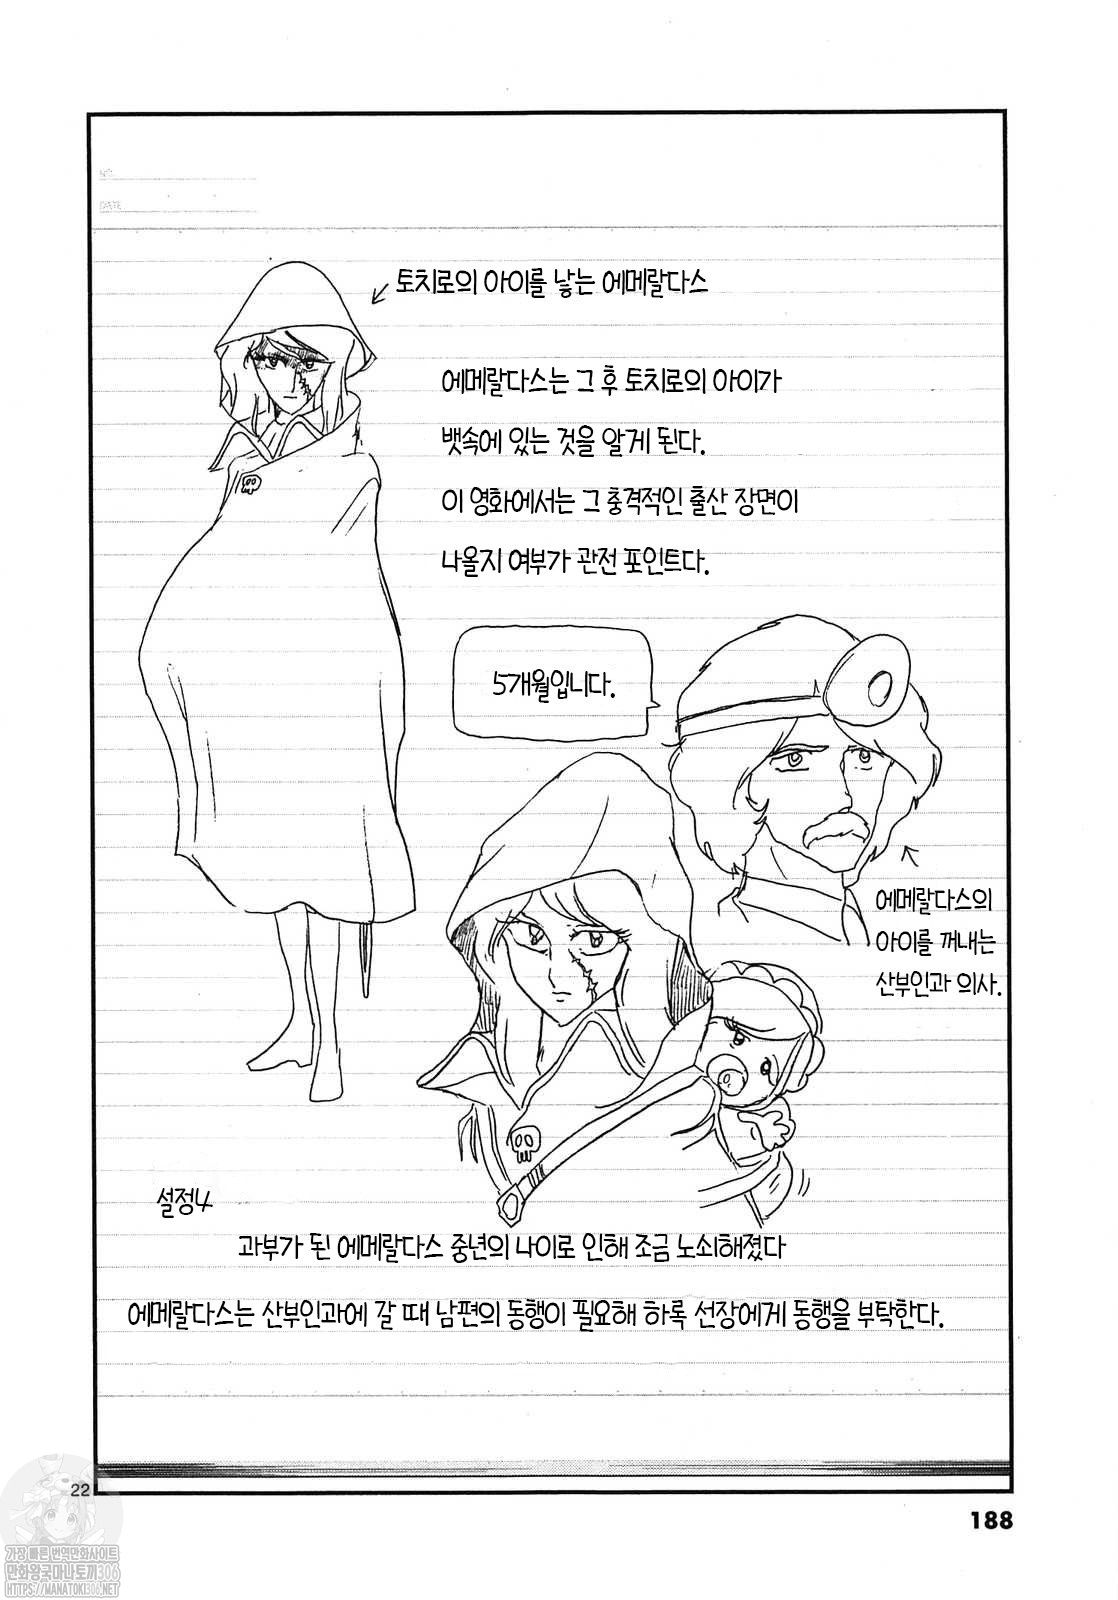 NO.
DATE
토치로의 아이를 낳는 에메랄다스
에메랄다스는 그 후 토치로의 아이가
뱃속에 있는 것을 알게 된다.
이 영화에서는 그 충격적인 출산 장면이
나올지 여부가 관전 포인트다.
5개월입니다.
에메랄다스의
아이를 꺼내는
산부인과 의사.
설정4
과부가 된 에메랄다스 중년의 나이로 인해 조금 노쇠해졌다
에메랄다스는 산부인과에 갈 때 남편의 동행이 필요해 하록 선장에게 동행을 부탁한다.
22
188
가장 빠른 번역만화사이트
만화왕국마나토끼306
HTTPS://MANATOKI306.NET